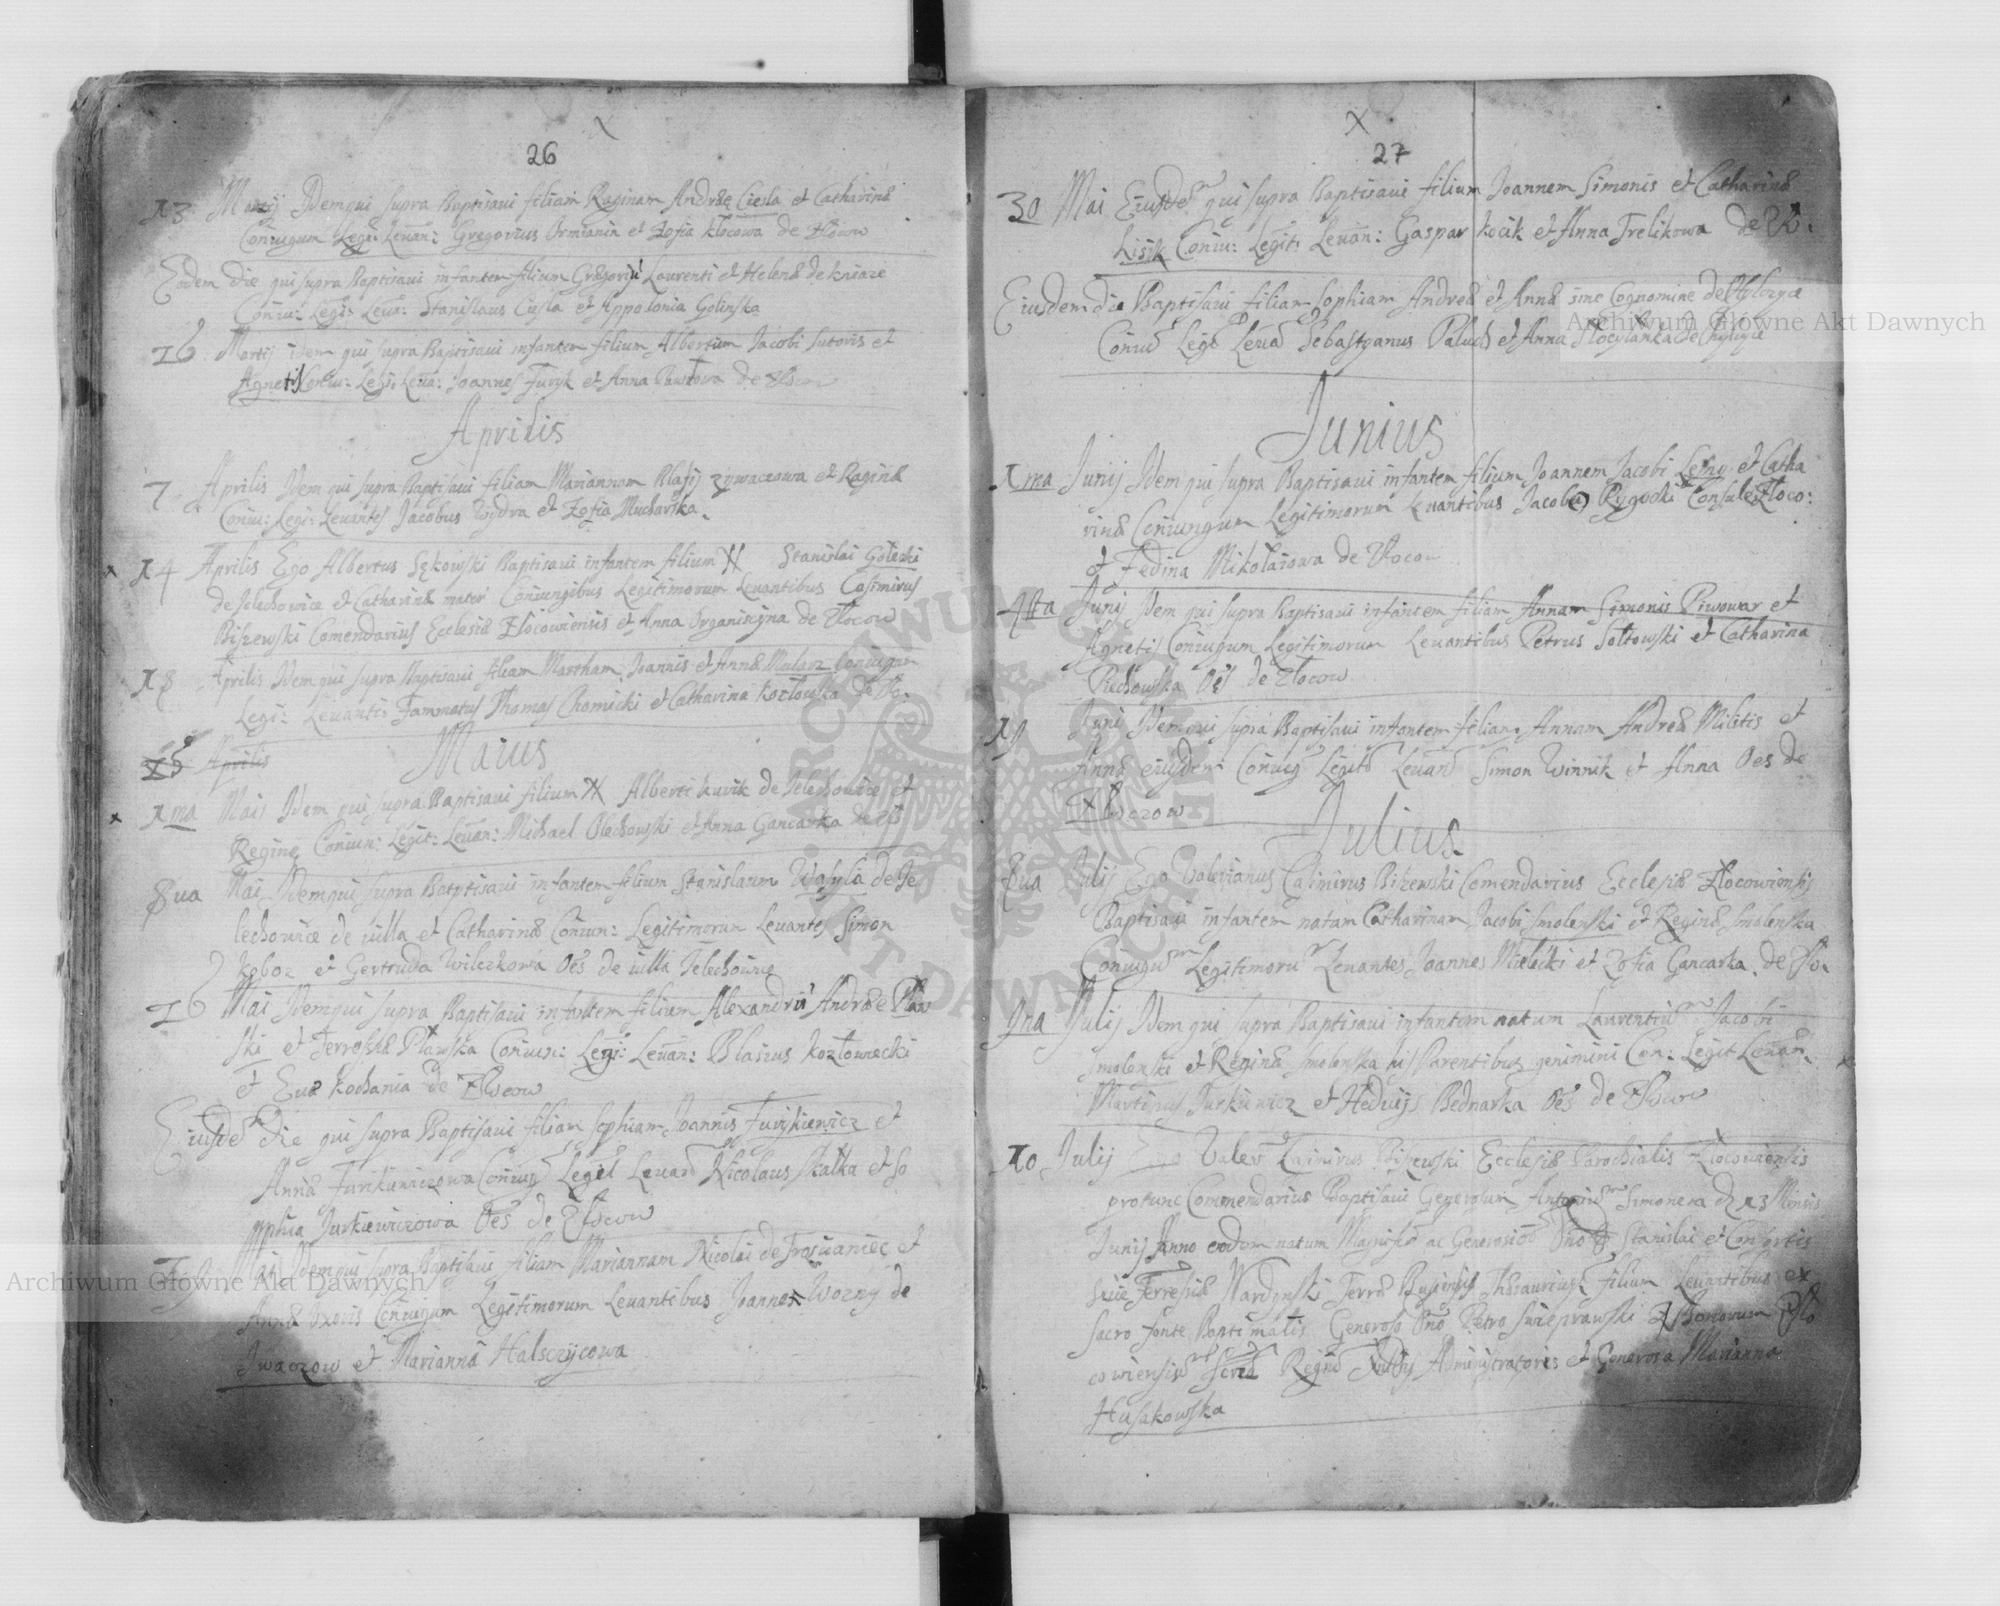 26
13 Martij Idem qui supra Baptisaui filiam Raginam Andreę Ciesla et Catharinæ
Coniugum Legi: Leuan: Gregorius Ormianin et Zofia Klocowa de Złocow
Eodem Die qui supra Baptisaui infantem filium Gregoriu Laurenti et Helenæ de kniaze
Coniu: Legi: Leua: Stanislaus Ciesla et Appolonia Golinska
16 Martij idem qui supra Baptisaui infantem filium Albertum Jacobi Sutoris et
Agnetis Coniu: Legi: Leua: Joannes Furyk et Anna de Złocow
Aprilis
7 Aprilis Idem qui supra Baptisaui filiam Mariannam et Raginæ
Coniu: Legi: Leuantes Jacobus Wydra et Zofia Mucharska
14 Aprilis Ego Albertus Sękowski Baptisaui infantem filium N Stanislai Goleski
de Jelechowice et Catharinæ mater Coniungibus Legitimorum Leuantibus Casimirus
Biszewski Comendarius Ecclesiæ Złocowiensis et Anna Organiscina de Złocow
18 Aprilis Idem qui supra Baptisaui filiam Martham Joannis et Annæ Mularz Coniugum
Legi: Leuanti: Fammatus Thomas Chomicki et Catharina Kozłowska de Zło.
25 Aprilis
Maius
1ma Maij Idem qui supra Baptisaui filium N Alberti kurik de Jelechowice et
Reginę Coniun: Legit: Leuan: Michael Olechowski et Anna Gancarka de Zło
8ua Mai Idem qui supra Batptisaui infantem filium Stanislaum Wasyla de Je
lechowice de uilla et Catharinæ Coniun: Legitimorum Leuantes Simon
Koboz et Gertruda Wilczkowa Oes de uilla Jelechowice
16 Mai Idem qui supra Baptisaui infantem filium Alexandru Andreæ Pław
ski et Terressæ Pławska Coniun: Legi: Leuan: Blasius Kozłowiecki
et Eua Kochania de Złocow
Eiusdem Die qui supra Baptisaui filiam Sophiam Joannis Furykiewicz et
Annæ Furikawiczowa Coniug Legit Leuan Nicolaus Skałka et So
phia Jurkiewiczowa Oes de Złocow
Mai Idem qui supra Baptisaui filiam Mariannam Nicolai de et
Annæ Uxoris Coniugum Legitimorum Leuantibus Joannes Wozny de
Iwaczow et Marianna Halsczycowa
27
30 Mai Eiusdem qui supra Baptisaui filium Joannem Simonis et Catharinæ
Lisik Coniu: Legit: Leuan: Gaspar Kocik et Anna Trelikowa de Zło.
Eiusdem die Baptisaui filiam Sophiam Andreæ et Annæ sine Cognomine de
Coniu Legi Leua Sebastyanus Paluch et Anna de
Junius
1ma Junij Idem qui supra Baptisaui infantem filium Joannem Jacobi Lesny et Catha
rinæ Coniungum Legitimorum Leuantibus Jacobo Rygocki Consule Złoco:
et Fedina Mikołaiowa de Złocow
4ta Junij Idem qui supra Baptisaui infantem filiam Annam Simonis Piwowar et
Agnetis Coniugum Legitimorum Leuantibus Petrus Sołtowski et Catharina
Piechowska Oes de Złocow
19 Junij Idem qui supra Baptisaui infantem filiam Annam Andreæ Militis et
Annæ eiusdem Coniug Legit Leuan Simon Winnik et Anna Oes de
Złoczow
Julius
8ua Julij Ego Valerianus Casimirus Biszewski Comendarius Ecclesiæ Złocowiensis
Baptisaui infantem natam Catharinam Jacobi Smolenski et Reginæ Smolenska
Coniugum Legitimoru Leuantes Joannes Mielecki et Zofia Gancarka de Zło.
9na Julij Idem qui supra Baptisaui infantem natum Laurentium Jacobi
Smolenski et Reginæ Smolenska his Parentibus genimini Con: Legit Leuan.
Martinus Jurkiewicz et Hedwigs Bednarka Oes de Złocow
10 Julij Ego Valer Casimirus Biszewski Ecclesiæ Parochialis Złocowiensis
protunc Commendarius Baptisaui Generosum Antonium Simonem 13 Mensis
Junij Anno eodem natum Magnifici ac Generosi Dno Stanislai et Consortis
suæ Terresiæ Terræ filium Leuantibus ex
sacro fonte Baptimatis Generoso Dno Petro Swieprawski Bonorum Zło
cowiensium Administratoris et Generosa Marianna
Husakowska
Archiwum Główne Akt Dawnych
Archiwum Główne Akt Dawnych
ARCHIWUM GŁÓWNE AKT DAWNYCH